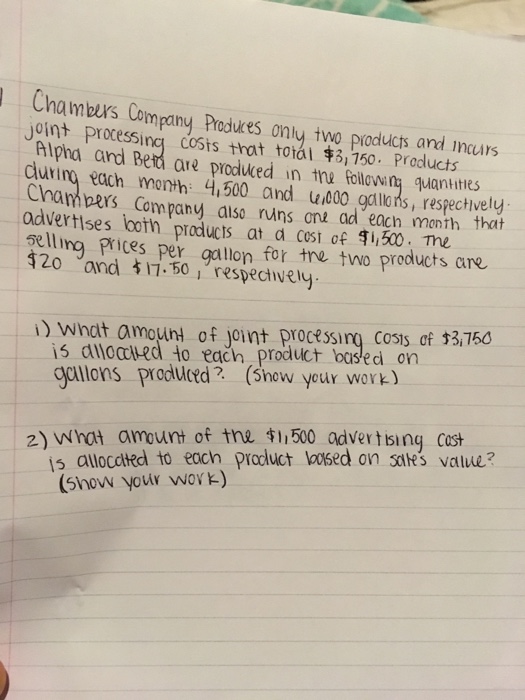 Chambers Company Produces only two products and incurs
joint processing costs that total $3,750. Products
Alpha and Beta are produced in the following quantities
during each month: 4,500 and 6,000 gallons, respectively.
Chambers Company also runs one ad each month that
advertises both products at a cost of $1,500. The
selling prices per gallon for the two products are
$20 and $17.50, respectively.
1) What amount of joint processing costs of $3,750
is allocated to each product based on
gallons produced? (Show your work)
2) What amount of the $1,500 advertising cost
is allocated to each product based on sales value?
(show your work)